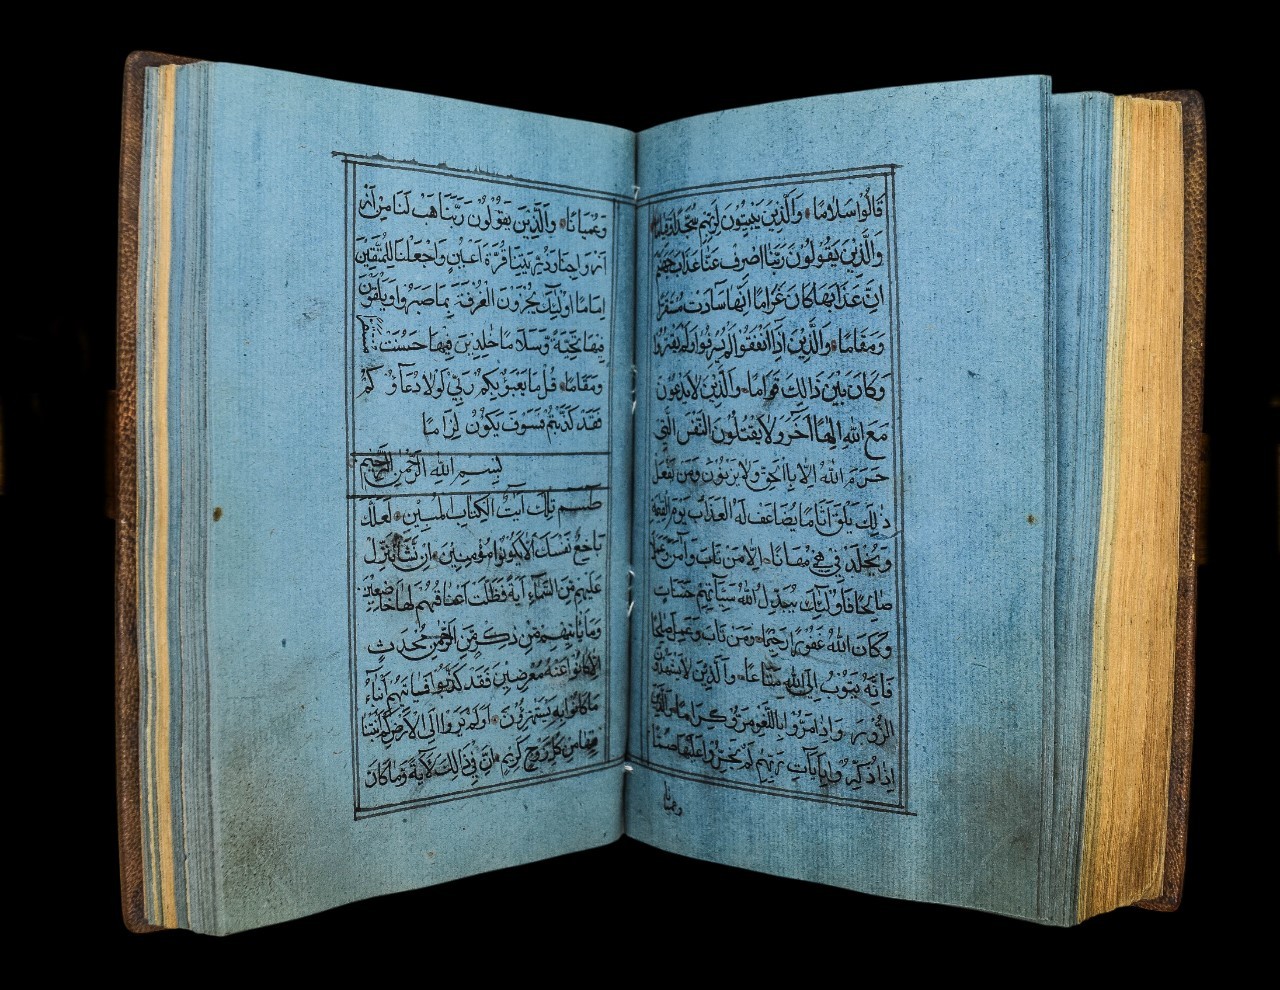 قالوا سلاما والذين يبيتون لربهم سجدا وقياما
والذين يقولون ربنا اصرف عنا عذاب جهنم
ان عذابها كان غراما انها ساءت مستقرا
ومقاما والذين اذا انفقوا لم يسرفوا ولم يقتروا
وكان بين ذالك قواما والذين لا يدعون
مع الله الها اخر ولا يقتلون النفس التي
حرم الله الا بالحق ولا يزنون ومن يفعل
ذلك يلق اثاما يضاعف له العذاب يوم القيمة
ويخلد فيه مهانا الا من تاب وآمن وعمل
صالحا فاولئك يبدل الله سيآتهم حسنات
وكان الله غفورا رحيما ومن تاب وعمل صالحا
فانه يتوب الى الله متابا والذين لا يشهدون
الزور واذا مروا باللغو مروا كراما والذين
اذا ذكروا بآيات ربهم لم يخروا عليها صما
وعميانا
وعميانا والذين يقولون ربنا هب لنا من از
ازواجنا وذريتنا قرة اعين واجعلنا للمتقين
اماما اولئك يجزون الغرفة بما صبروا ويلقون
فيها تحية وسلاما خلدين فيها حسنت
ومقاما قل ما يعبؤ بكم ربي لولا دعاؤكم
فقد كذبتم فسوف يكون لزاما
بسم الله الرحمن الرحيم
طسم تلك آيت الكتاب المبين لعلك
باخع نفسك الا يكونوا مؤمنين ان نشا ننزل
عليهم من السماء آية فظلت اعناقهم لها خاضعين
وما ياتيهم من ذكر من الرحمن محدث
الا كانوا عنه معرضين فقد كذبوا فسياتيهم انباء
ما كانوا به يستهزؤن اولم يروا الى الارض كم انبتنا
فيها من كل زوج كريم ان في ذالك لآية وما كان